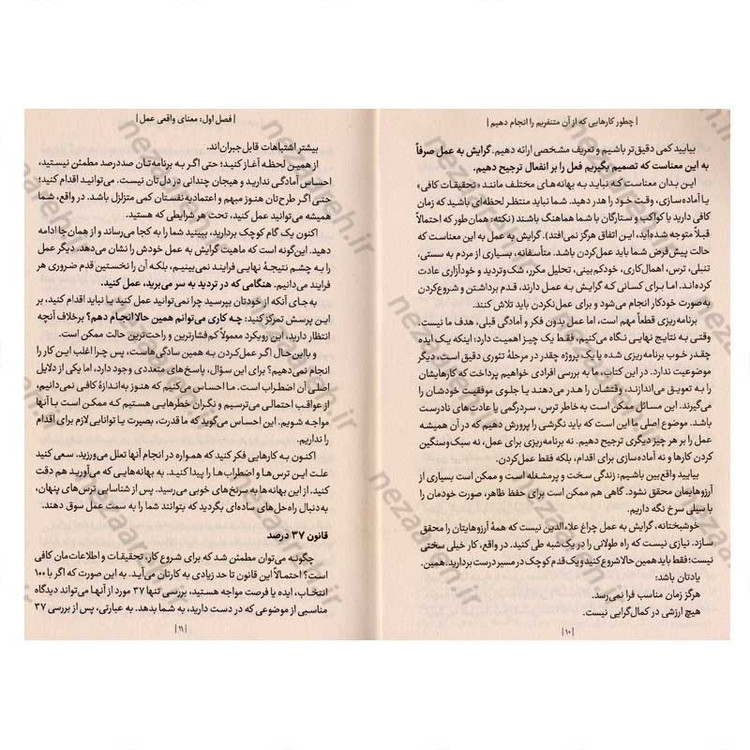 | چطور کارهایی که از آن متنفریم را انجام دهیم |
بیایید کمی دقیق‌تر باشیم و تعریف مشخصی ارائه دهیم. گرایش به عمل صرفاً
به این معناست که تصمیم بگیریم فعل را بر انفعال ترجیح دهیم.
این بدان معناست که نباید به بهانه‌های مختلف مانند «تحقیقات کافی»
یا آماده‌سازی، وقت خود را هدر دهید. شما نباید منتظر لحظه‌ای باشید که زمان
کافی دارید یا کواکب و ستارگان با شما هماهنگ باشند (نکته: همان‌طور که احتمالاً
قبلاً متوجه شده‌اید، این اتفاق هرگز نمی‌افتد). گرایش به عمل به این معناست که
حالت پیش‌فرض شما باید عمل‌کردن باشد. متأسفانه، بسیاری از مردم به سستی،
تنبلی، ترس، اهمال‌کاری، خودکم‌بینی، تحلیل مکرر، شک‌وتردید و خودآزاری عادت
کرده‌اند. اما برای کسانی که گرایش به عمل دارند، قدم برداشتن و شروع‌کردن
به‌صورت خودکار انجام می‌شود و برای عمل‌نکردن باید تلاش کنند.
برنامه‌ریزی قطعاً مهم است، اما عمل بدون فکر و آمادگی قبلی، هدف ما نیست.
وقتی به نتایج نهایی نگاه می‌کنیم، فقط یک چیز اهمیت دارد: اینکه یک ایده
چقدر خوب برنامه‌ریزی شده یا یک پروژه چقدر در مرحلهٔ تئوری دقیق است، دیگر
موضوعیت ندارد. در این کتاب، ما به بررسی افرادی خواهیم پرداخت که کارهایشان
را به تعویق می‌اندازند، وقتشان را هدر می‌دهند یا جلوی موفقیت خودشان را
می‌گیرند. این مسائل ممکن است به خاطر ترس، سردرگمی یا عادت‌های نادرست
باشد. موضوع اصلی ما این است که باید نگرشی را پرورش دهیم که در آن همیشه
عمل را بر هر چیز دیگری ترجیح دهیم. نه برنامه‌ریزی برای عمل، نه سبک‌وسنگین
کردن کارها و نه آماده‌سازی برای اقدام، بلکه فقط عمل‌کردن.
بیایید واقع‌بین باشیم: زندگی سخت و پرمشغله است و ممکن است بسیاری از
آرزوهایمان محقق نشود. گاهی هم ممکن است برای حفظ ظاهر، صورت خودمان را
با سیلی سرخ نگه داریم.
خوشبختانه، گرایش به عمل چراغ علاءالدین نیست که همهٔ آرزوهایتان را محقق
سازد. نیازی نیست که راه طولانی را در یک‌شبه طی کنید. در واقع، کار خیلی سختی
نیست؛ فقط باید همین حالا شروع کنید و یک قدم کوچک در مسیر درست بردارید. همین.
یادتان باشد:
هرگز زمان مناسب فرا نمی‌رسد.
هیچ ارزشی در کمال‌گرایی نیست.
| ۱۰ |
| فصل اول: معنای واقعی عمل |
بیشتر اشتباهات قابل جبران‌اند.
از همین لحظه آغاز کنید؛ حتی اگر به برنامه‌تان صددرصد مطمئن نیستید،
احساس آمادگی ندارید و هیجان چندانی در دل‌تان نیست. می‌توانید اقدام کنید؛
حتی اگر طرح‌تان هنوز مبهم و اعتمادبه‌نفستان کمی متزلزل باشد. در واقع، شما
همیشه می‌توانید عمل کنید، تحت هر شرایطی که هستید.
اکنون یک گام کوچک بردارید، ببینید شما را به کجا می‌رساند و از همان جا ادامه
دهید. این‌گونه است که ماهیت گرایش به عمل خودش را نشان می‌دهد، دیگر عمل
را به چشم نتیجهٔ نهایی فرایند نمی‌بینیم، بلکه آن را نخستین قدم ضروری هر
فرایند می‌دانیم. هنگامی که در تردید به سر می‌برید، عمل کنید.
به جای آنکه از خودتان بپرسید چرا نمی‌توانید عمل کنید یا نباید اقدام کنید، بر
این پرسش تمرکز کنید: چه کاری می‌توانم همین حالا انجام دهم؟ برخلاف آنچه
انتظار دارید، این رویکرد معمولاً کم‌فشارترین و راحت‌ترین حالت ممکن است.
و با این‌حال اگر عمل‌کردن به همین سادگی‌هاست، پس چرا اغلب این کار را
انجام نمی‌دهیم؟ برای این سؤال، پاسخ‌های متعددی وجود دارد، اما یکی از دلایل
اصلی آن اضطراب است. ما احساس می‌کنیم که هنوز به‌اندازهٔ کافی نمی‌دانیم،
از عواقب احتمالی می‌ترسیم و نگران خطرهایی هستیم که ممکن است با آنها
مواجه شویم. این احساس می‌گوید که ما قدرت، بصیرت یا توانایی لازم برای اقدام
را نداریم.
اکنون به کارهایی فکر کنید که همواره در انجام آنها تعلل می‌ورزید. سعی کنید
علت این ترس‌ها و اضطراب‌ها را پیدا کنید. به بهانه‌هایی که می‌آورید هم دقت
کنید. از این بهانه‌ها به سرنخ‌های خوبی می‌رسید. پس از شناسایی ترس‌های پنهان،
به‌دنبال راه‌حل‌های ساده‌ای بگردید که بتوانند شما را به سمت عمل سوق دهند.
قانون ۳۷ درصد
چگونه می‌توان مطمئن شد که برای شروع کار، تحقیقات و اطلاعات‌مان کافی
است؟ احتمالاً این قانون تا حد زیادی به کارتان می‌آید. به این صورت که اگر با ۱۰۰
انتخاب، ایده یا فرصت مواجه هستید، بررسی تنها ۳۷ مورد از آنها می‌تواند دیدگاه
مناسبی از موضوعی که در دست دارید، به شما بدهد. به عبارتی، پس از بررسی ۳۷
| ۱۱ |
nezaareh.ir